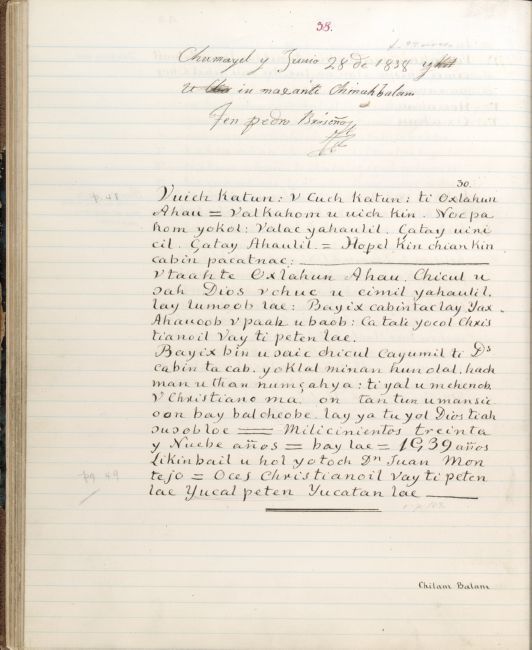 38.
Chumayel y Junio 28 de 1838
u in maxante Chimahbalam
Jen pedro Briseño
30.
Vuich Katun: v Cuch Katun: ti Oxlahun
Ahau = Valkahom u uich kin. Nocpa
hom yokol: Valac yahaulil. Çatay uini
cil. Çatay Ahaulil. = Hopel kin chian kin
cabin pacatnac:
vtaahte Oxlahun Ahau. Chicul u
sah Dios vchuc u cimil yahaulil.
lay lumoob lae: Bayix cabintac lay Yax
Ahauoob v paak ubaob: Ca tali yocol Chris
tianoil Vay ti peten lae.
Bayix bin u saic chicul Cayumil ti Ds
cabin ta cab. yoklal minan hun olal, hach
man u than numçahya: ti yal u mehenob.
V Christiano ma on tan tun u mansic
oon bay balcheobe. lay ya tu yol Dios tiah
susobloe = Milicinientos treinta
y Nuebe años = bay lae = 1539 años
Likinbail u hol yotoch Dn Juan Mon
tejo = Oces Christianoil Vay ti peten
lae Yucalpeten Yucatan lae
p. 48
pg. 49
Chilam Balam